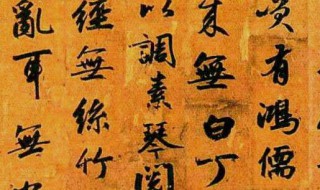 咲有鴻儒
来無白丁
以調素琴閱
經無絲竹
亂耳無